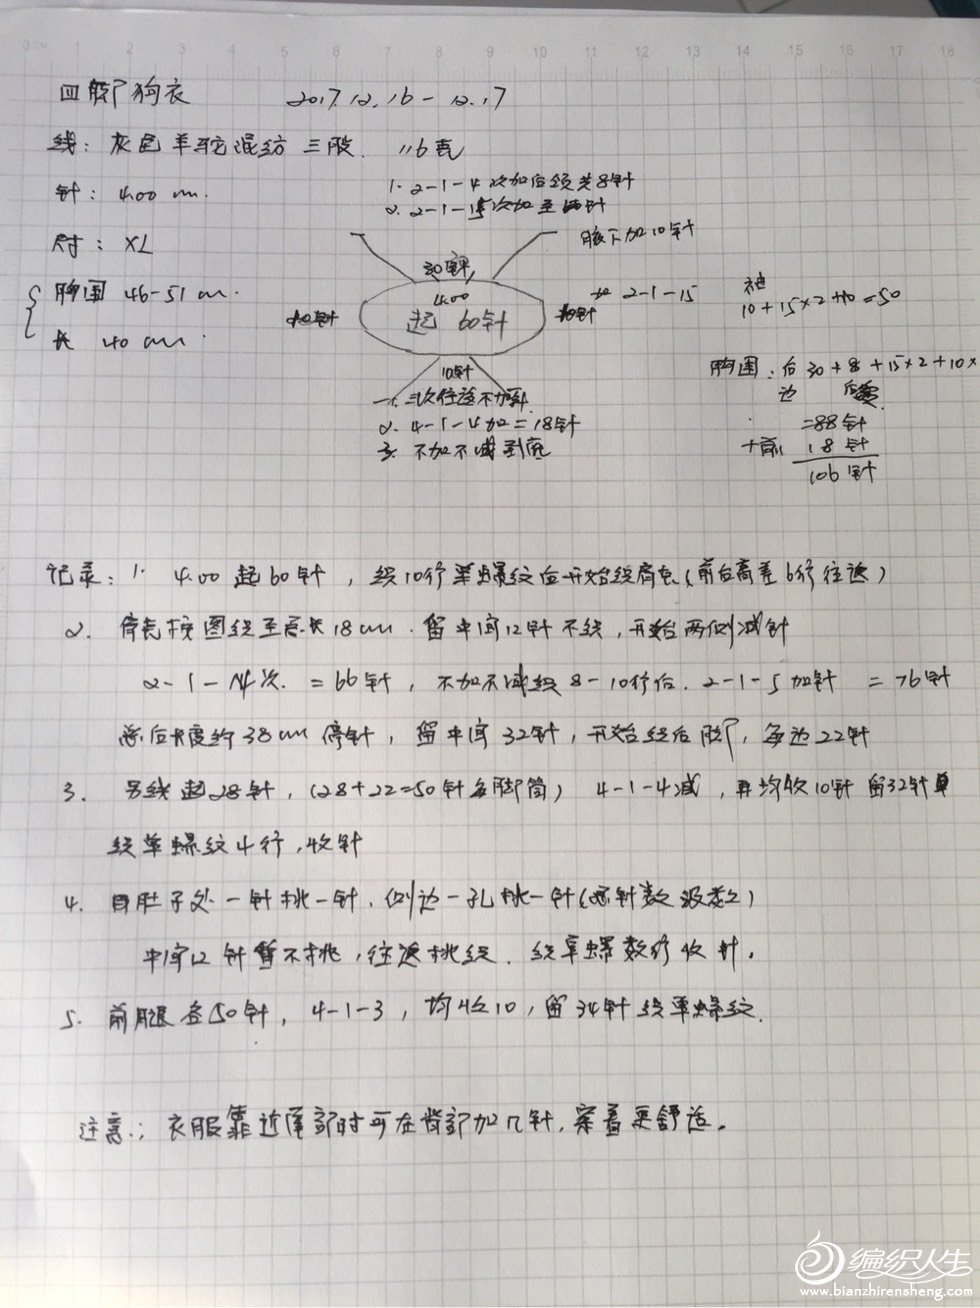 0 1 2 3 4 5 6 7 8 9 10 11 12 13 14 15 16 17 18
四脚狗衣 2017.12.16-12.17
线: 灰色羊驼混纺 三股. 116克
针: 4.00 mm.
尺寸: XL
胸围 46-51 cm.
长 40 cm.
1. 2-1-4次加后领共8针
2. 2-1-15次加至
腋下加10针
30针
4.00
起 60针
10针
10针
2-1-15
袖
10+15×2+10=50
10针
一. 三次往返不加
2. 4-1-4加=18针
3. 不加不减到底
胸围: 后30+8+15×2+10×
边
=88针
+前 18针
106针
记录: 1. 4.00 起60针, 织10行单螺纹后开始织肩克(前后高差6行往返)
2. 肩克按图织至总长18cm. 留中间12针不织, 开始两侧减针
2-1-14次. =66针, 不加不减织8-10行后. 2-1-5加针 =76针
总后长度约38cm停针, 留中间32针, 开始织后脚, 每边22针
3. 另线起28针, (28+22=50针每脚筒) 4-1-4减, 再均收10针 留32针
织单螺纹4行, 收针
4. 自肚子处一针挑一针, 侧边一孔挑一针(总针数双数)
中间12针暂不挑, 往返挑织. 织单螺数行收针.
5. 前腿各50针, 4-1-3, 均收10, 留34针织单螺纹.
注意: 衣服靠近尾部时可在背部加几针, 穿着更舒适.
编织人生
www.bianzhirensheng.com